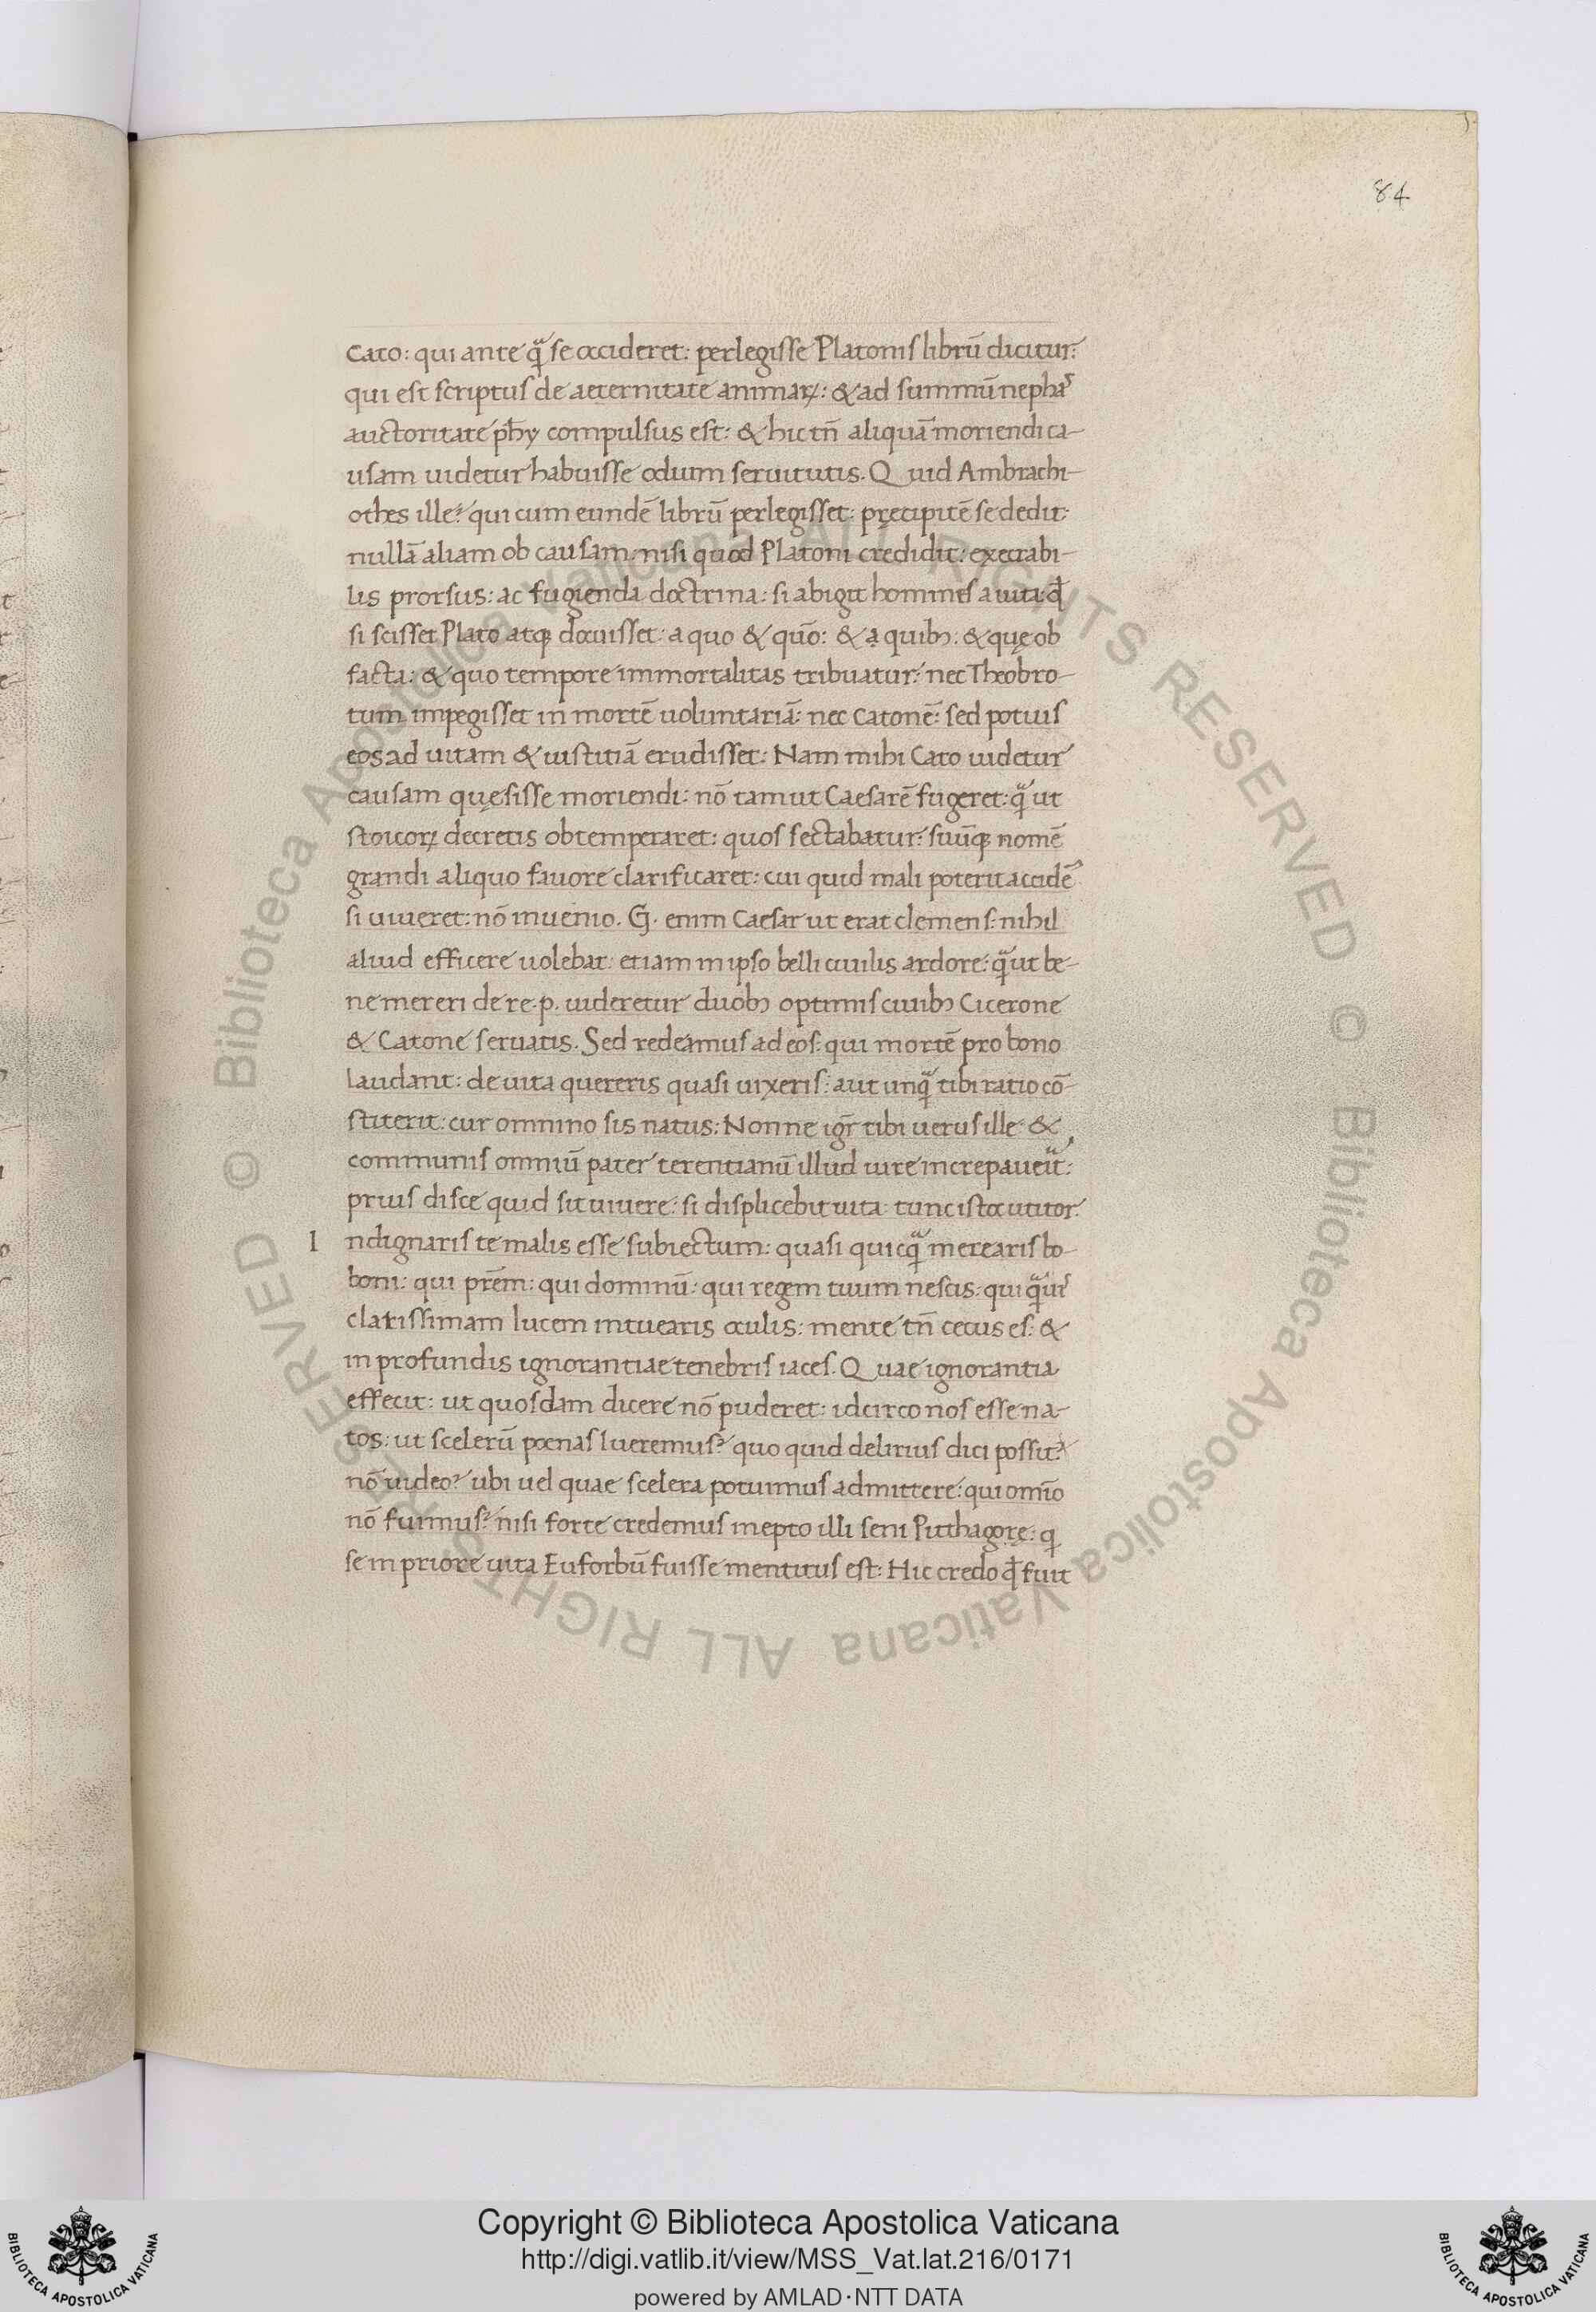 84
Cato: qui ante q̃ se occideret: perlegisse Platonis librū dicitur:
qui est scriptus de aeternitate animaꝝ: & ad summū nephaˢ
auctoritate phỹ compulsus est: & hic tñ aliquā moriendi ca-
usam uidetur habuisse odium seruitutis. Quid Ambrachi-
othes ille? qui cum eundē librū perlegisset: pręcipitē se dedit:
nullā aliam ob causam: nisi quod Platoni credidit: execrabi-
lis prorsus: ac fugienda doctrina: si abigit homines a uita: qđ
si scisset Plato atqꝫ docuisset: a quo & quō: & a quibꝫ: & quę ob
facta: & quo tempore immortalitas tribuatur: nec Theobro-
tum impegisset in mortē uoluntariā: nec Catonē: sed potius
eos ad uitam & iustitiā erudisset: Nam mihi Cato uidetur
causam quęsisse moriendi: nō tam ut Caesarē fugeret: q̃ ut
stoicoꝝ decretis obtemperaret: quos sectabatur: suūqꝫ nomē
grandi aliquo fauore clarificaret: cui quid mali poterit accidē
si uiueret: nō inuenio. G. enim Caesar ut erat clemens: nihil
aliud efficere uolebat: etiam in ipso belli ciuilis ardore: q̃ ut be-
ne mereri de re.p. uideretur duobꝫ optimis ciuibꝫ Cicerone
& Catone seruatis. Sed redeamus ad eos: qui mortē pro bono
laudant: de uita quereris quasi uixeris: aut unq̃ tibi ratio cō-
stiterit: cur omnino sis natus: Nonne igr̃ tibi uerus ille &
communis omniū pater terentianū illud iure increpauerit:
prius disce quid sit uiuere: si displicebit uita: tunc istoc utitor.
Indignaris te malis esse subiectum: quasi quicq̃ merearis bo-
boni: qui prēm: qui dominū: qui regem tuum nescis: qui q̃uiˢ
clarissimam lucem intuearis oculis: mente tñ cecus es: &
in profundis ignorantiae tenebris iaces. Quae ignorantia
effecit: ut quosdam dicere nō puderet: idcirco nos esse na-
tos: ut scelerū poenas lueremus? quo quid delirius dici possit?
nō uideo? ubi uel quae scelera potuimus admittere: qui omīo
nō fuimus? nisi forte credemus inepto illi seni Pitthagorę: qi
se in priore uita Euforbū fuisse mentitus est: Hic credo qđ fuit
Copyright © Biblioteca Apostolica Vaticana
http://digi.vatlib.it/view/MSS_Vat.lat.216/0171
powered by AMLAD·NTT DATA